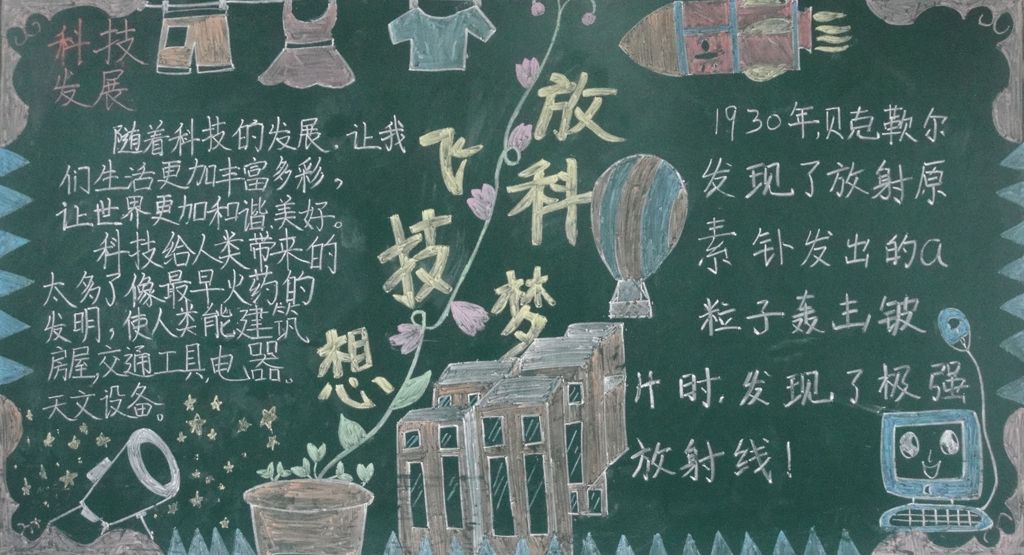 科技
发展
随着科技的发展.让我
们生活更加丰富多彩,
让世界更加和谐美好。
科技给人类带来的
太多了像最早火药的
发明,使人类能建筑
房屋,交通工具,电器.
天文设备。
放
飞
科
技
梦
想
1930年,贝克勒尔
发现了放射原
素钋发出的a
粒子轰击铍
片时,发现了极强
放射线!